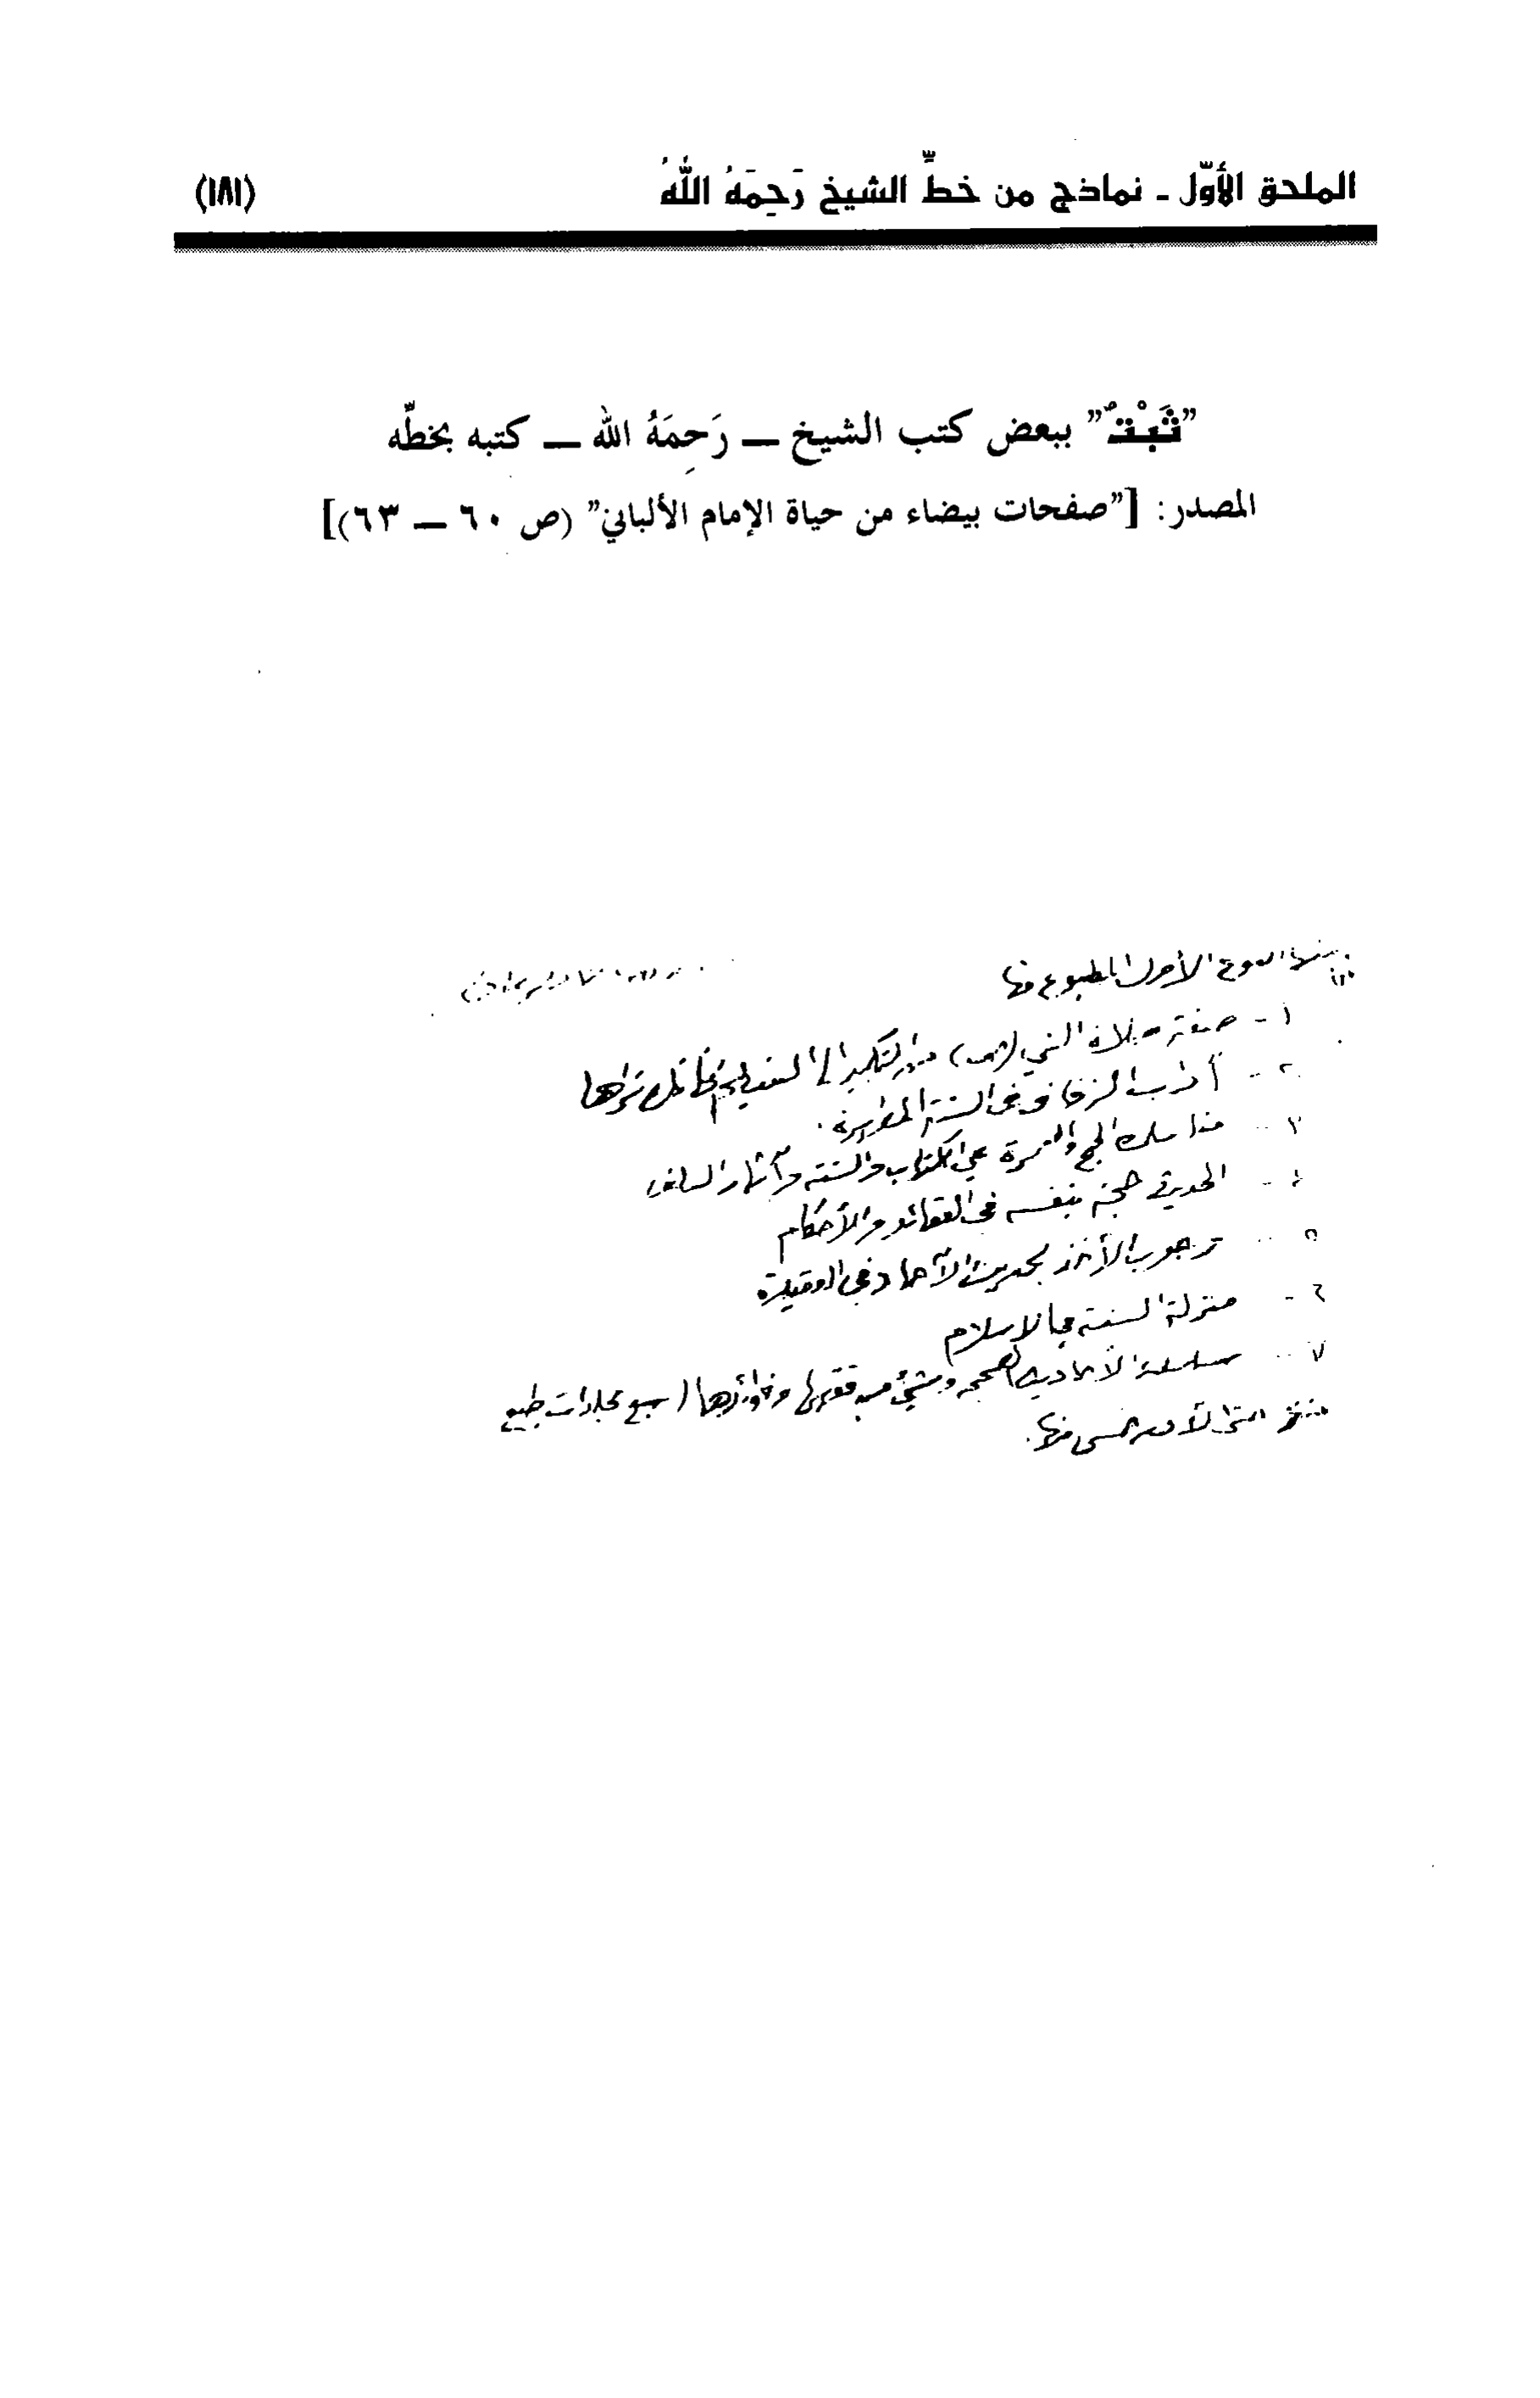 الملحق الأوّل - نماذج من خطِّ الشيخ رَحِمَهُ اللَّهُ (١٨١)
"ثَبْتٌ" ببعض كتب الشيخ — رَحِمَهُ الله — كتبه بخطّه
المصدر: ["صفحات بيضاء من حياة الإمام الألباني" (ص ٦٠ — ٦٣)]
النوع الأول المطبوع منها
١ - صفة صلاة النبي (ص) من التكبير إلى التسليم كأنك تراها
٢ - آداب الزفاف في السنة المطهرة.
٣ - مناسك الحج والعمرة في الكتاب والسنة وآثار السلف
٤ - الحديث حجة بنفسه في العقائد والأحكام
٥ - وجوب الأخذ بحديث الآحاد في العقيدة
٦ - منزلة السنة في الإسلام
٧ - سلسلة الأحاديث الصحيحة وشيء من فقهها وفوائدها (سبع مجلدات طبع
منها.